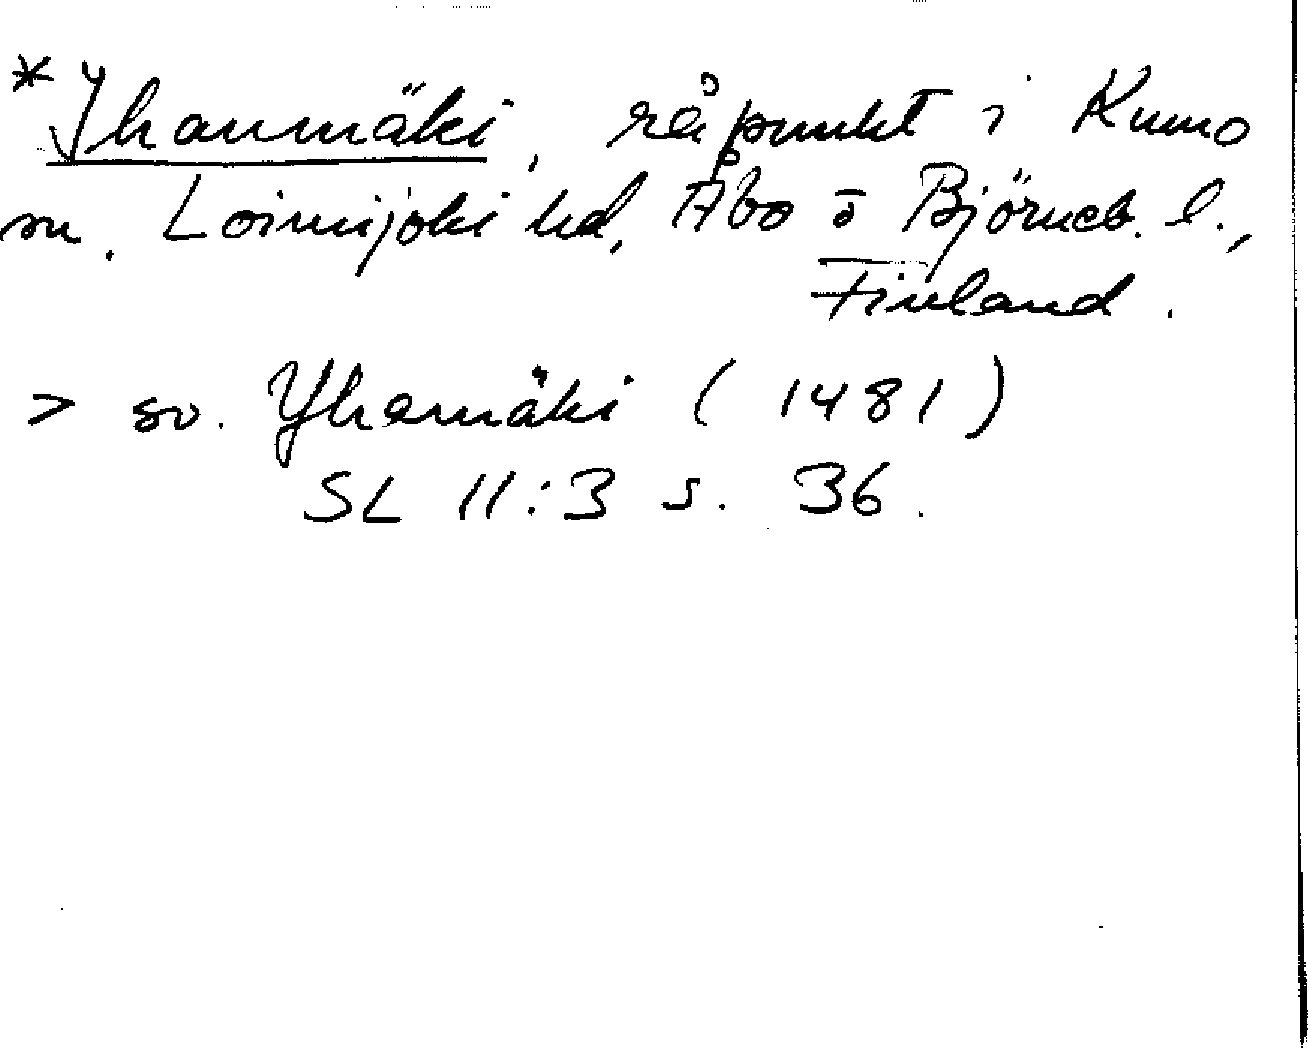 * Ihanmäki, råpunkt i Kumo
sn. Loimijoki hd, Åbo o Björneb. l.,
Finland.
> sv. Yhamäki (1481)
SL 11:3 s. 36.